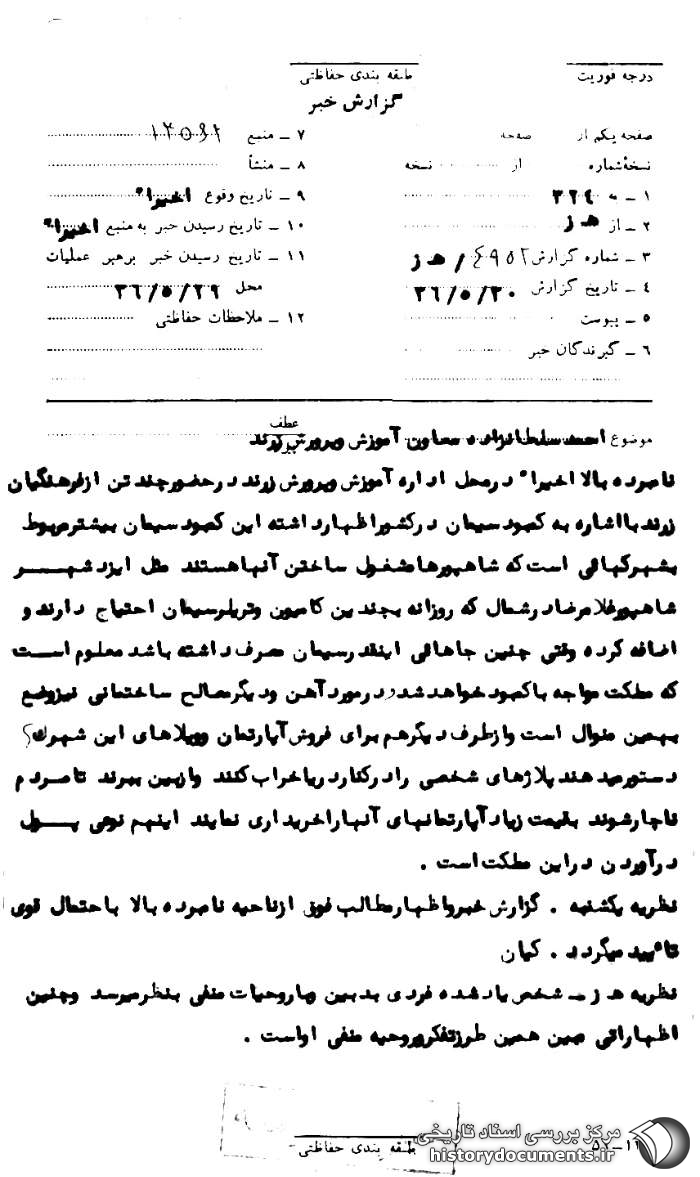 درجه فوریت
طبقه بندی حفاظتی
گزارش خبر
صفحه یکم از صفحه
نسخه‌شماره از نسخه
۱ – به ۳۲٤
۲ – از ه‍ ز
۳ – شماره گزارش / ه‍ ز
٤ – تاریخ گزارش ۳۶/۵/۳۰
۵ – پیوست
۶ – گیرندگان خبر
۷ – منبع
۸ – منشأ
۹ – تاریخ وقوع اخیراً
۱۰ – تاریخ رسیدن خبر به منبع اخیراً
۱۱ – تاریخ رسیدن خبر برهبر عملیات
محل ۳۶/۵/۲۹
۱۲ – ملاحظات حفاظتی
موضوع احمد سلطانزاده معاون آموزش وپرورش زرند
عطف
نامبرده بالا اخیراً درمحل اداره آموزش وپرورش زرند درحضورچند تن ازفرهنگیان
زرند بااشاره به کمبود سیمان درکشوراظهارداشته این کمبود سیمان بیشترمربوط
بشهرکهائی است که شاهپورهامشغول ساختن آنهاهستند مثل ایزد شهر
شاهپورغلامرضا درشمال که روزانه بچندین کامیون وتریلرسیمان احتیاج دارند و
اضافه کرده وقتی چنین جاهائی اینقدرسیمان مصرف داشته باشد معلوم است
که مملکت مواجه باکمبود خواهد شد، درمورد آهن ودیگرمصالح ساختمانی نیزوضع
بهمین منوال است وازطرف دیگرهم برای فروش آپارتمان وویلاهای این شهرک
دستورمیدهند پلاژهای شخصی را درکنار دریاخراب کنند وازبین ببرند تامردم
ناچارشوند بقیمت زیاد آپارتمانهای آنهاراخریداری نمایند اینهم نوعی پول
درآوردن دراین مملکت است .
نظریه یکشنبه . گزارش خبرواظهارمطالب فوق ازناحیه نامبرده بالا باحتمال قوی
تائید میگردد . کیان
نظریه ه‍ ز – شخص یادشده فردی بدبین وباروحیات منفی بنظرمیرسد وچنین
اظهاراتی مبین همین طرزتفکروروحیه منفی اواست .
طبقه بندی حفاظتی
مرکز بررسی اسناد تاریخی
historydocuments.ir